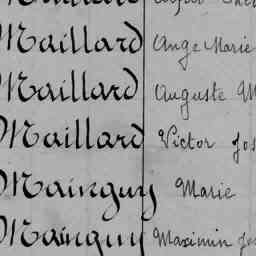 Maillard Ange Marie
Maillard Auguste M
Maillard Victor Jos
Mainguy Marie
Mainguy Maximin Jos